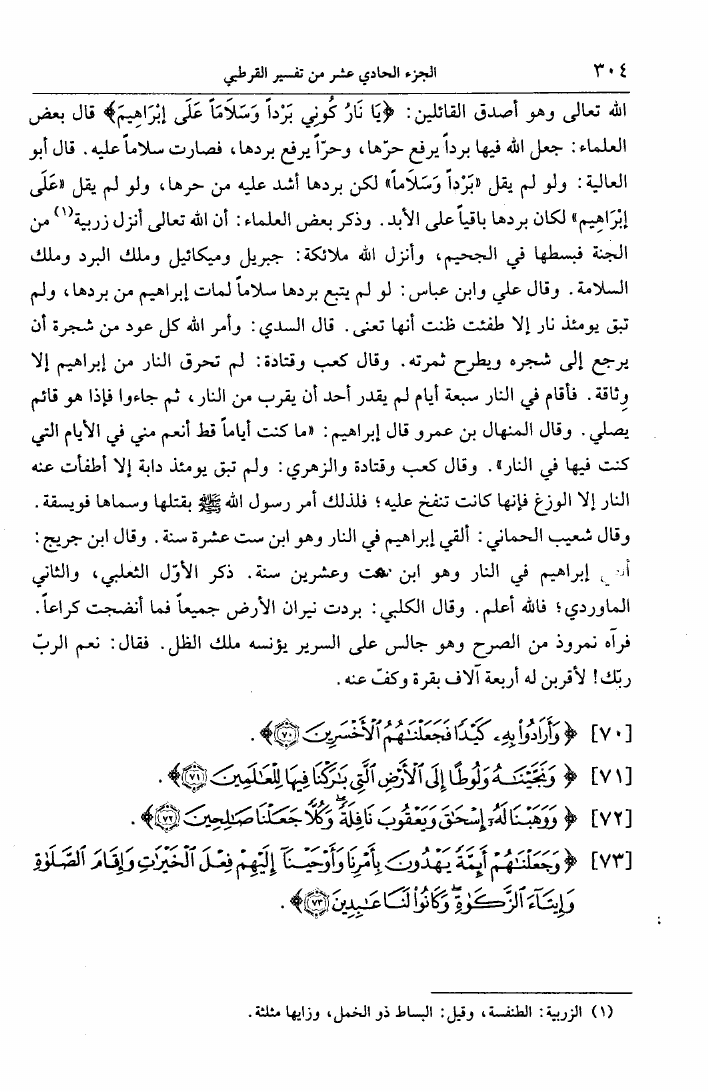 ٣٠٤ الجزء الحادي عشر من تفسير القرطبي
الله تعالى وهو أصدق القائلين: ﴿يَا نَارُ كُونِي بَرْداً وَسَلَامَاً عَلَى إبْرَاهِيمَ﴾ قال بعض
العلماء: جعل الله فيها برداً يرفع حرّها، وحرّاً يرفع بردها، فصارت سلاماً عليه. قال أبو
العالية: ولو لم يقل «بَرْداً وَسَلَاماً» لكن بردها أشد عليه من حرها، ولو لم يقل «عَلَى
إبْرَاهِيم» لكان بردها باقياً على الأبد. وذكر بعض العلماء: أن الله تعالى أنزل زربية(١) من
الجنة فبسطها في الجحيم، وأنزل الله ملائكة: جبريل وميكائيل وملك البرد وملك
السلامة. وقال علي وابن عباس: لو لم يتبع بردها سلاماً لمات إبراهيم من بردها، ولم
تبق يومئذ نار إلا طفئت ظنت أنها تعنى. قال السدي: وأمر الله كل عود من شجرة أن
يرجع إلى شجره ويطرح ثمرته. وقال كعب وقتادة: لم تحرق النار من إبراهيم إلا
وِثاقة. فأقام في النار سبعة أيام لم يقدر أحد أن يقرب من النار، ثم جاءوا فإذا هو قائم
يصلي. وقال المنهال بن عمرو قال إبراهيم: «ما كنت أياماً قط أنعم مني في الأيام التي
كنت فيها في النار». وقال كعب وقتادة والزهري: ولم تبق يومئذ دابة إلا أطفأت عنه
النار إلا الوزغ فإنها كانت تنفخ عليه؛ فلذلك أمر رسول الله ﷺ بقتلها وسماها فويسقة.
وقال شعيب الحماني: ألقي إبراهيم في النار وهو ابن ست عشرة سنة. وقال ابن جريج:
إبراهيم في النار وهو ابن وعشرين سنة. ذكر الأوّل الثعلبي، والثاني
الماوردي؛ فالله أعلم. وقال الكلبي: بردت نيران الأرض جميعاً فما أنضجت كراعاً.
فرآه نمروذ من الصرح وهو جالس على السرير يؤنسه ملك الظل. فقال: نعم الربّ
ربّك! لأقربن له أربعة آلاف بقرة وكفّ عنه.
[٧٠] ﴿وَأَرَادُوا۟ بِهِۦ كَيْدًا فَجَعَلْنَٰهُمُ ٱلْأَخْسَرِينَ ٧٠﴾.
[٧١] ﴿وَنَجَّيْنَٰهُ وَلُوطًا إِلَى ٱلْأَرْضِ ٱلَّتِى بَٰرَكْنَا فِيهَا لِلْعَٰلَمِينَ ٧١﴾.
[٧٢] ﴿وَوَهَبْنَا لَهُۥٓ إِسْحَٰقَ وَيَعْقُوبَ نَافِلَةً ۖ وَكُلًّا جَعَلْنَا صَٰلِحِينَ ٧٢﴾.
[٧٣] ﴿وَجَعَلْنَٰهُمْ أَئِمَّةً يَهْدُونَ بِأَمْرِنَا وَأَوْحَيْنَآ إِلَيْهِمْ فِعْلَ ٱلْخَيْرَٰتِ وَإِقَامَ ٱلصَّلَوٰةِ
وَإِيتَآءَ ٱلزَّكَوٰةِ ۖ وَكَانُوا۟ لَنَا عَٰبِدِينَ ٧٣﴾.
(١) الزربية: الطنفسة، وقيل: البساط ذو الخمل، وزايها مثلثة.